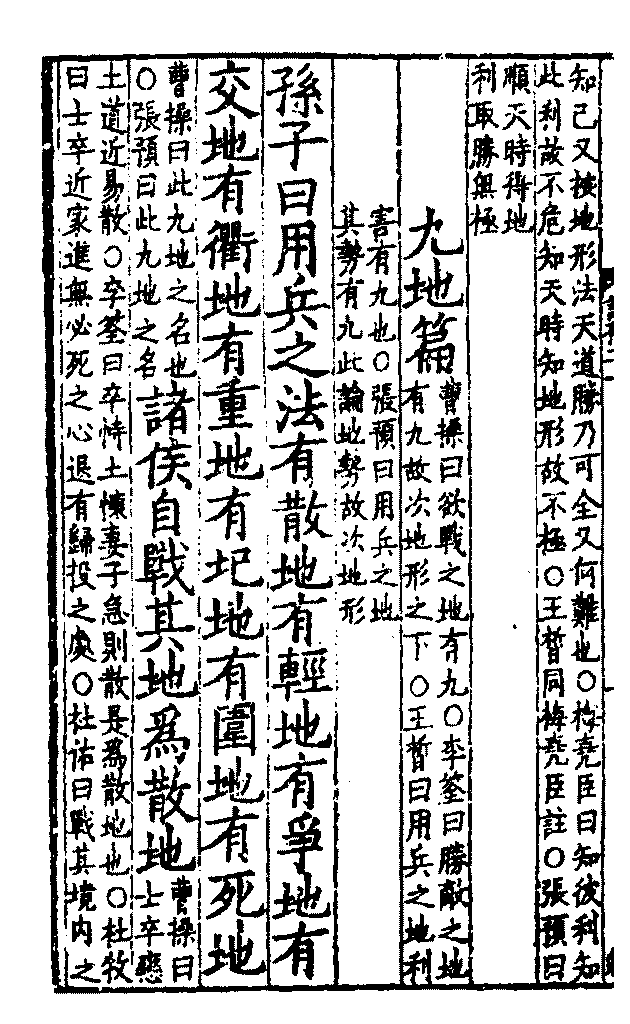 知己又按地形法天道勝乃可全又何難也○梅堯臣曰知彼利知
此利故不危知天時知地形故不極○王晳同梅堯臣註○張預曰
順天時得地
利取勝無極
九地篇
曹操曰欲戰之地有九○李筌曰勝敵之地
有九故次地形之下○王晳曰用兵之地利
害有九也○張預曰用兵之地
其勢有九此論地勢故次地形
孫子曰用兵之法有散地有輕地有爭地有
交地有衢地有重地有圮地有圍地有死地
曹操曰此九地之名也
○張預曰此九地之名
諸侯自戰其地爲散地
曹操曰
士卒戀
土道近易散○李筌曰卒恃土懷妻子急則散是爲散地也○杜牧
曰士卒近家進無必死之心退有歸投之處○杜佑曰戰其境内之